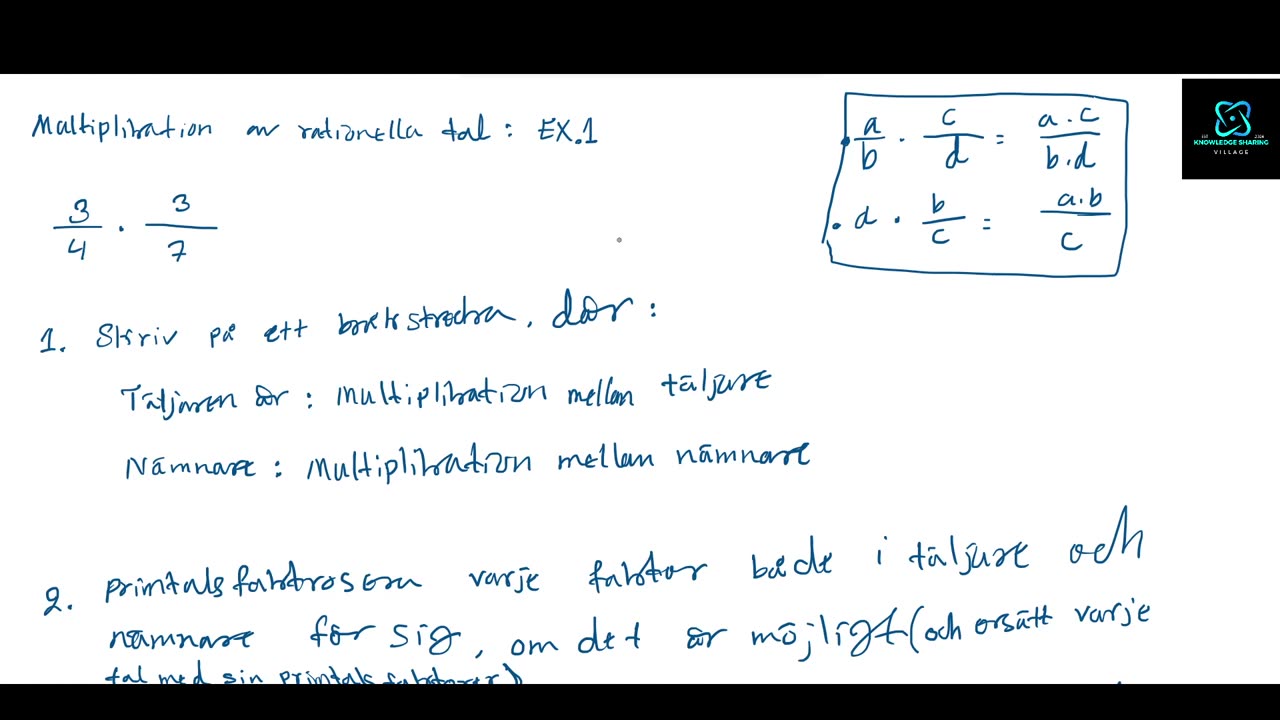 Multiplikation av rationella tal : EX.1
3/4 · 3/7
· a/b · c/d = a·c/b·d
· d · b/c = a·b/c
KNOWLEDGE SHARING
VILLAGE
1. Skriv på ett bråkstrecka, där :
Täljaren är : Multiplikation mellan täljare
Nämnare : Multiplikation mellan nämnare
2. primtalsfaktrosera varje faktor både i täljare och
nämnare för sig, om det är möjligt (och ersätt varje
tal med sin primtalsfaktorer)